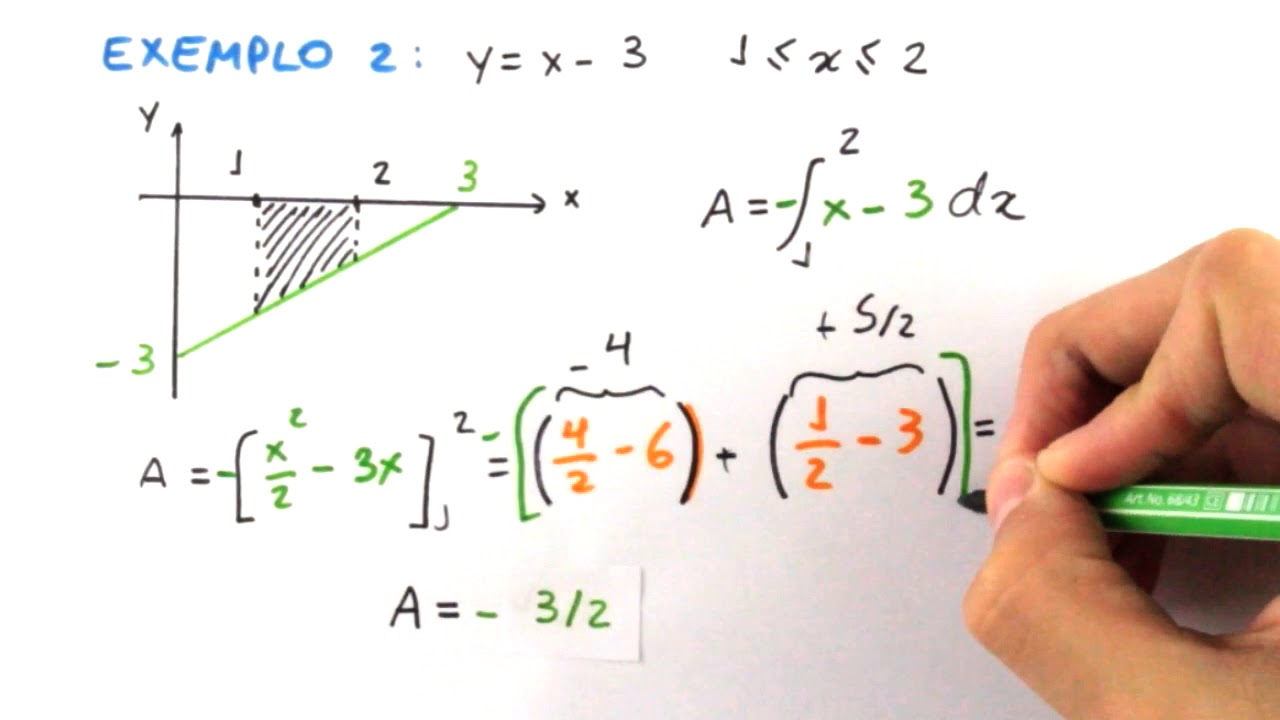 EXEMPLO 2: y = x - 3 1 ≤ x ≤ 2
y
1 2 3
x
-3
A = -∫₁² x - 3 dx
-4 + 5/2
A = -[x²/2 - 3x]₁² = -[(4/2 - 6) + (1/2 - 3)] =
A = - 3/2
Art. No. 68/43 CE